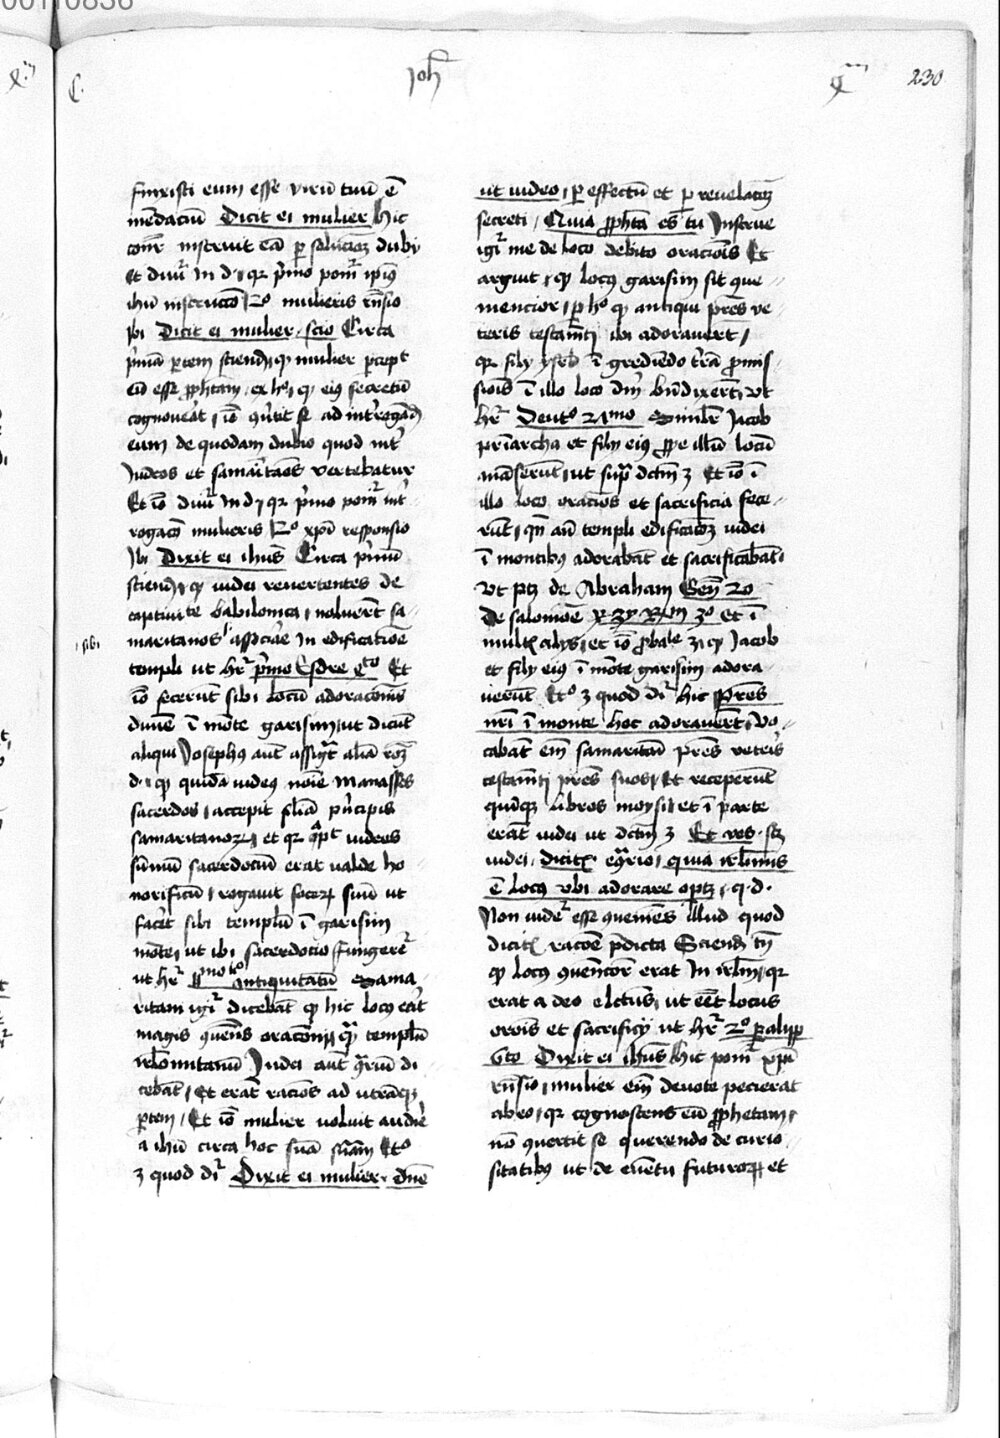 C. Joh 4m 230
finxisti eum esse virum tuum est
mendacium Dicit ei mulier hic
et divitur in d. quia primo ponitur ipsius
ihu instructio 2o mulieris responsio
ibi Dicit ei mulier . scio Circa
primam partem sciendum quod mulier percepit
eum esse prophetam , ex hoc quod eius secretum
eum de quodam dubio quod inter
Judeos et samaritanos vertebatur
Et ideo dividitur in d. quia primo ponitur inter
rogatio mulieris 2o xpi responsio
ibi Dixit ei ihus Circa primum
sciendum quod iudei revertentes de
captivitate babilonica , noluerunt sa
maritanos associare in edificatione
sibi
templi ut habetur primo Esdre 4to Et
ideo fecerunt sibi locum adorationis
divine in monte garisim ut dicunt
aliqui Josephus autem assignat aliam rationem
d. quod quidam iudeus nomine Manasses
sacerdos , accepit filiam principis
samaritanorum , et quia apud iudeos
summum sacerdotium erat valde ho
norificum , rogavit socerum suum ut
faceret sibi templum in garisim
monte ut ibi sacerdotio fungeretur
ut habetur antiquitatum Sama
ritani igitur dicebant quod hic locus erat
magis conveniens orationi quam templum
ierosolomitanum Judei autem contrarium di
cebant , Et erant rationes ad utramque
partem , Et ideo mulier voluit audire
a ihu circa hoc suam sententiam
et quod dicitur Dixit ei mulier . domine
ut video , per effectum et per revelationem
secreti , Quia propheta es tu Instrue
igitur me de loco debito orationis Et
arguit , quod locus garisim sit con
venientior , per hoc quod antiqui patres ve
teris testamenti ibi adoraverunt ,
quia filii israel in grediendo terram promis
sionis in illo loco dominum benedixerunt ut
habetur Deuto 27mo Similiter Jacob
patriarcha et filii eius prope illum locum
manserunt , ut supra dictum est Et ideo in
illo loco orationes et sacrificia fece
runt , quoniam ante templi edificationem iudei
in montibus adorabant et sacrificabant ,
Ut patet de Abraham Gen 20
de salomone et in
multis aliis , et ideo probabile est , quod Jacob
et filii eius in monte garisim adora
verunt quod dicitur hic Patres
nostri in monte hoc adoraverunt , Vo
cabant enim samaritani patres veteris
testamenti patres suos , Et receperunt
quinque libros moysi , et in parte
erant iudei ut dictum est Et vos . scilicet
iudei . dicitis econtrario , quia ierosolimis
est locus ubi adorare oportet , q. d.
Non videtur esse conveniens illud quod
dicitis ratione predicta Sciendum tamen
quod locus convenientior erat in ierusalem , quia
erat a deo electus , ut esset locus
orationis et sacrificii ut habetur 2o paralip
6to Dixit ei ihus Hic ponitur xpi
responsio , mulier enim devote pecierat
ab eo , quia cognoscens eum prophetam ,
non convertit se querendo de curio
sitatibus ut de eventu futurorum et